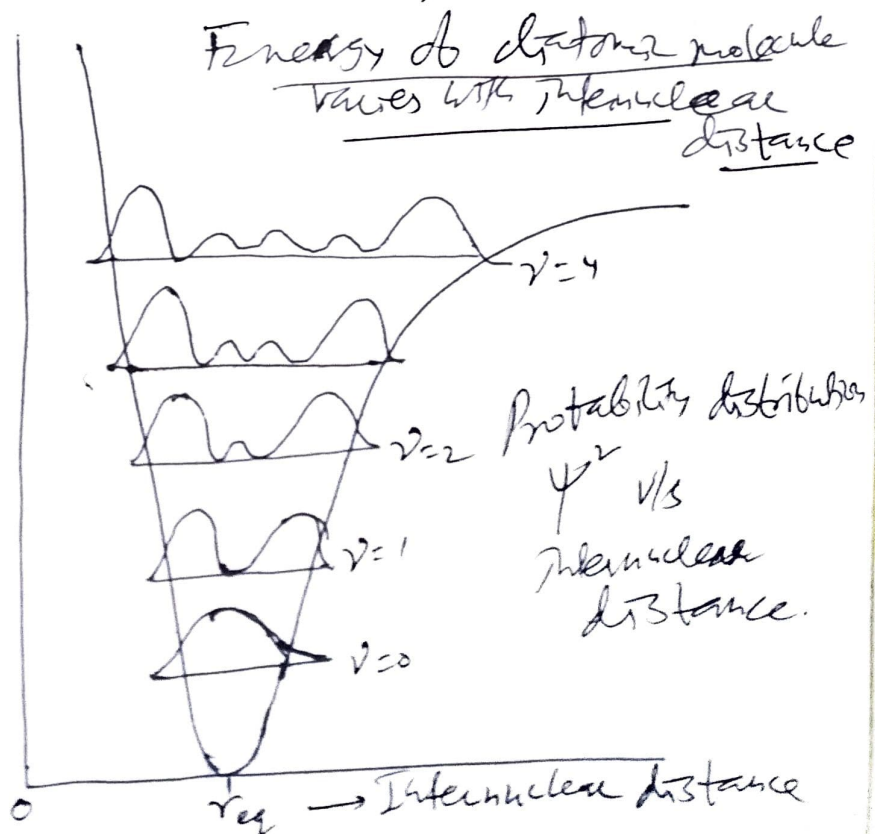 Energy of diatomic molecule
varies with internuclear
distance
ν=4
ν=2
Probability distribution
ψ² v/s
internuclear
distance.
ν=1
ν=0
0
req → Internuclear distance